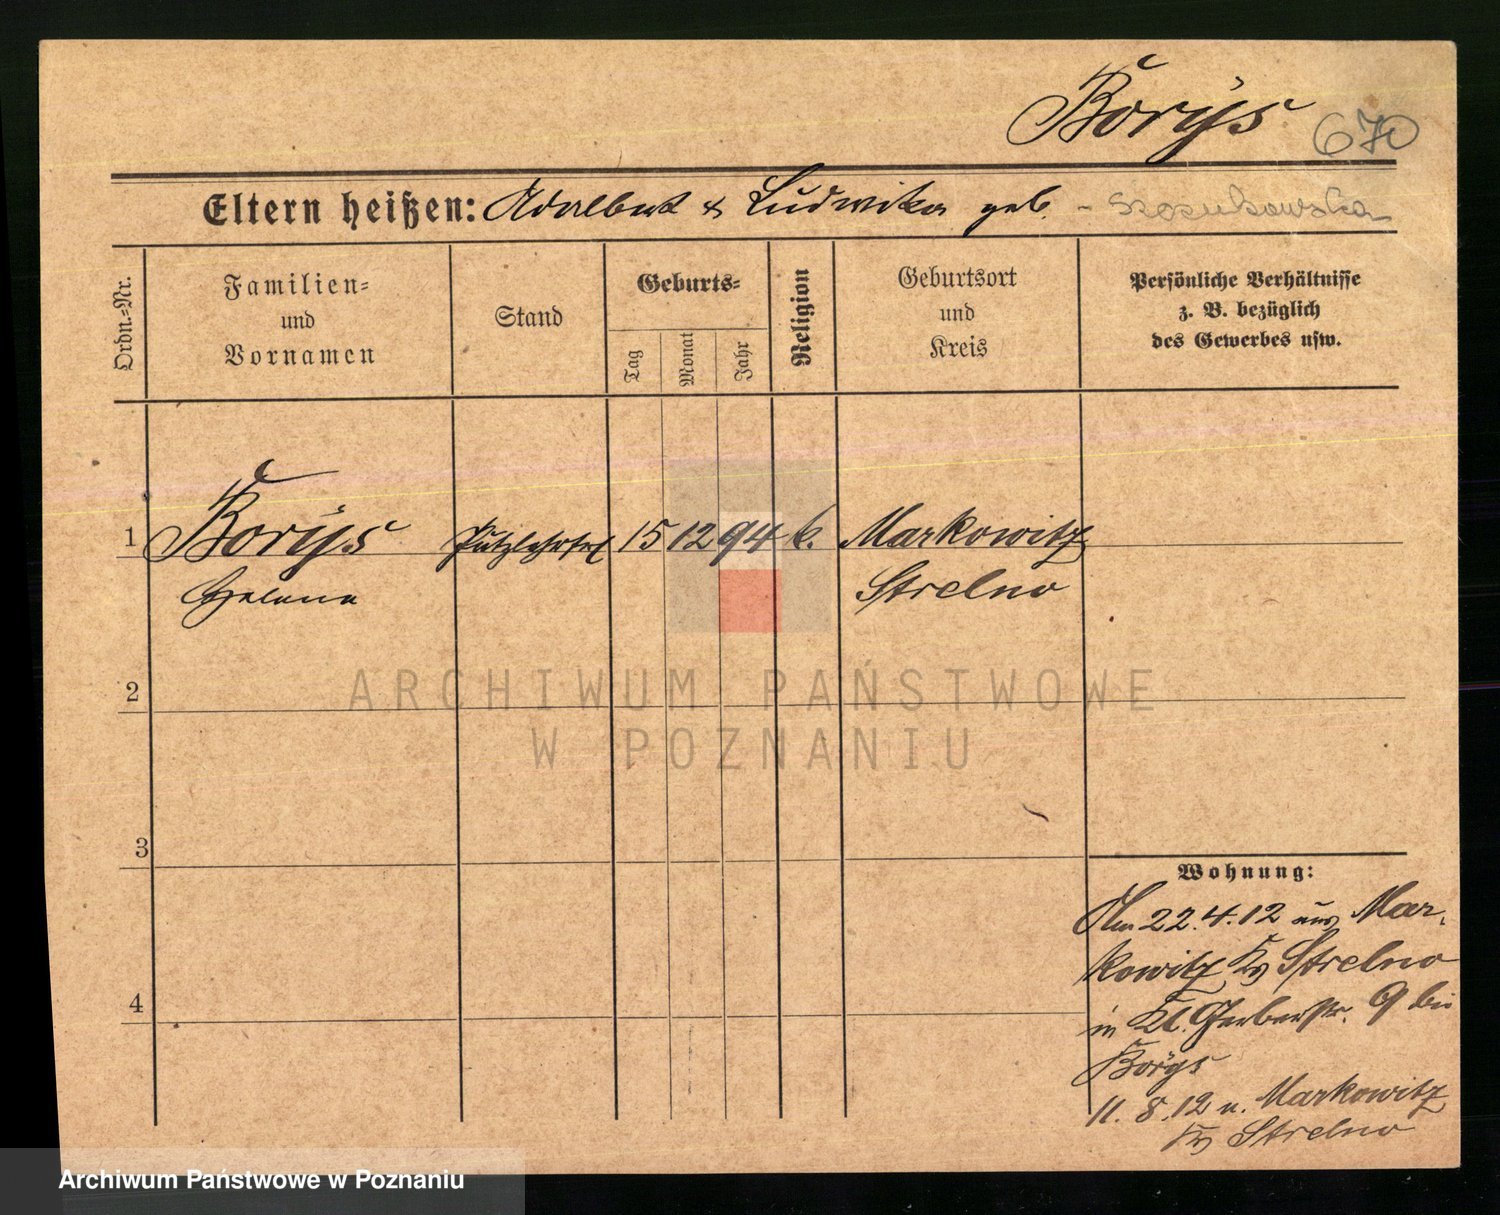 Borys 670
Eltern heißen: Adalbert & Ludwika geb. -
Ordn.-Nr.
Familien-
und
Vornamen
Stand
Geburts-
Tag
Monat
Jahr
Religion
Geburtsort
und
Kreis
Persönliche Verhältnisse
z. B. bezüglich
des Gewerbes usw.
1 Borys 15 12 94 k. Markowitz
Helena Strelno
2
ARCHIWUM PAŃSTWOWE
W POZNANIU
3
4
Wohnung:
Am 22.4.12 aus Mar-
kowitz Kr Strelno
in Kl. Gerberstr. 9 bei
Borys
11. 8. 12 n. Markowitz
Kr Strelno
Archiwum Państwowe w Poznaniu